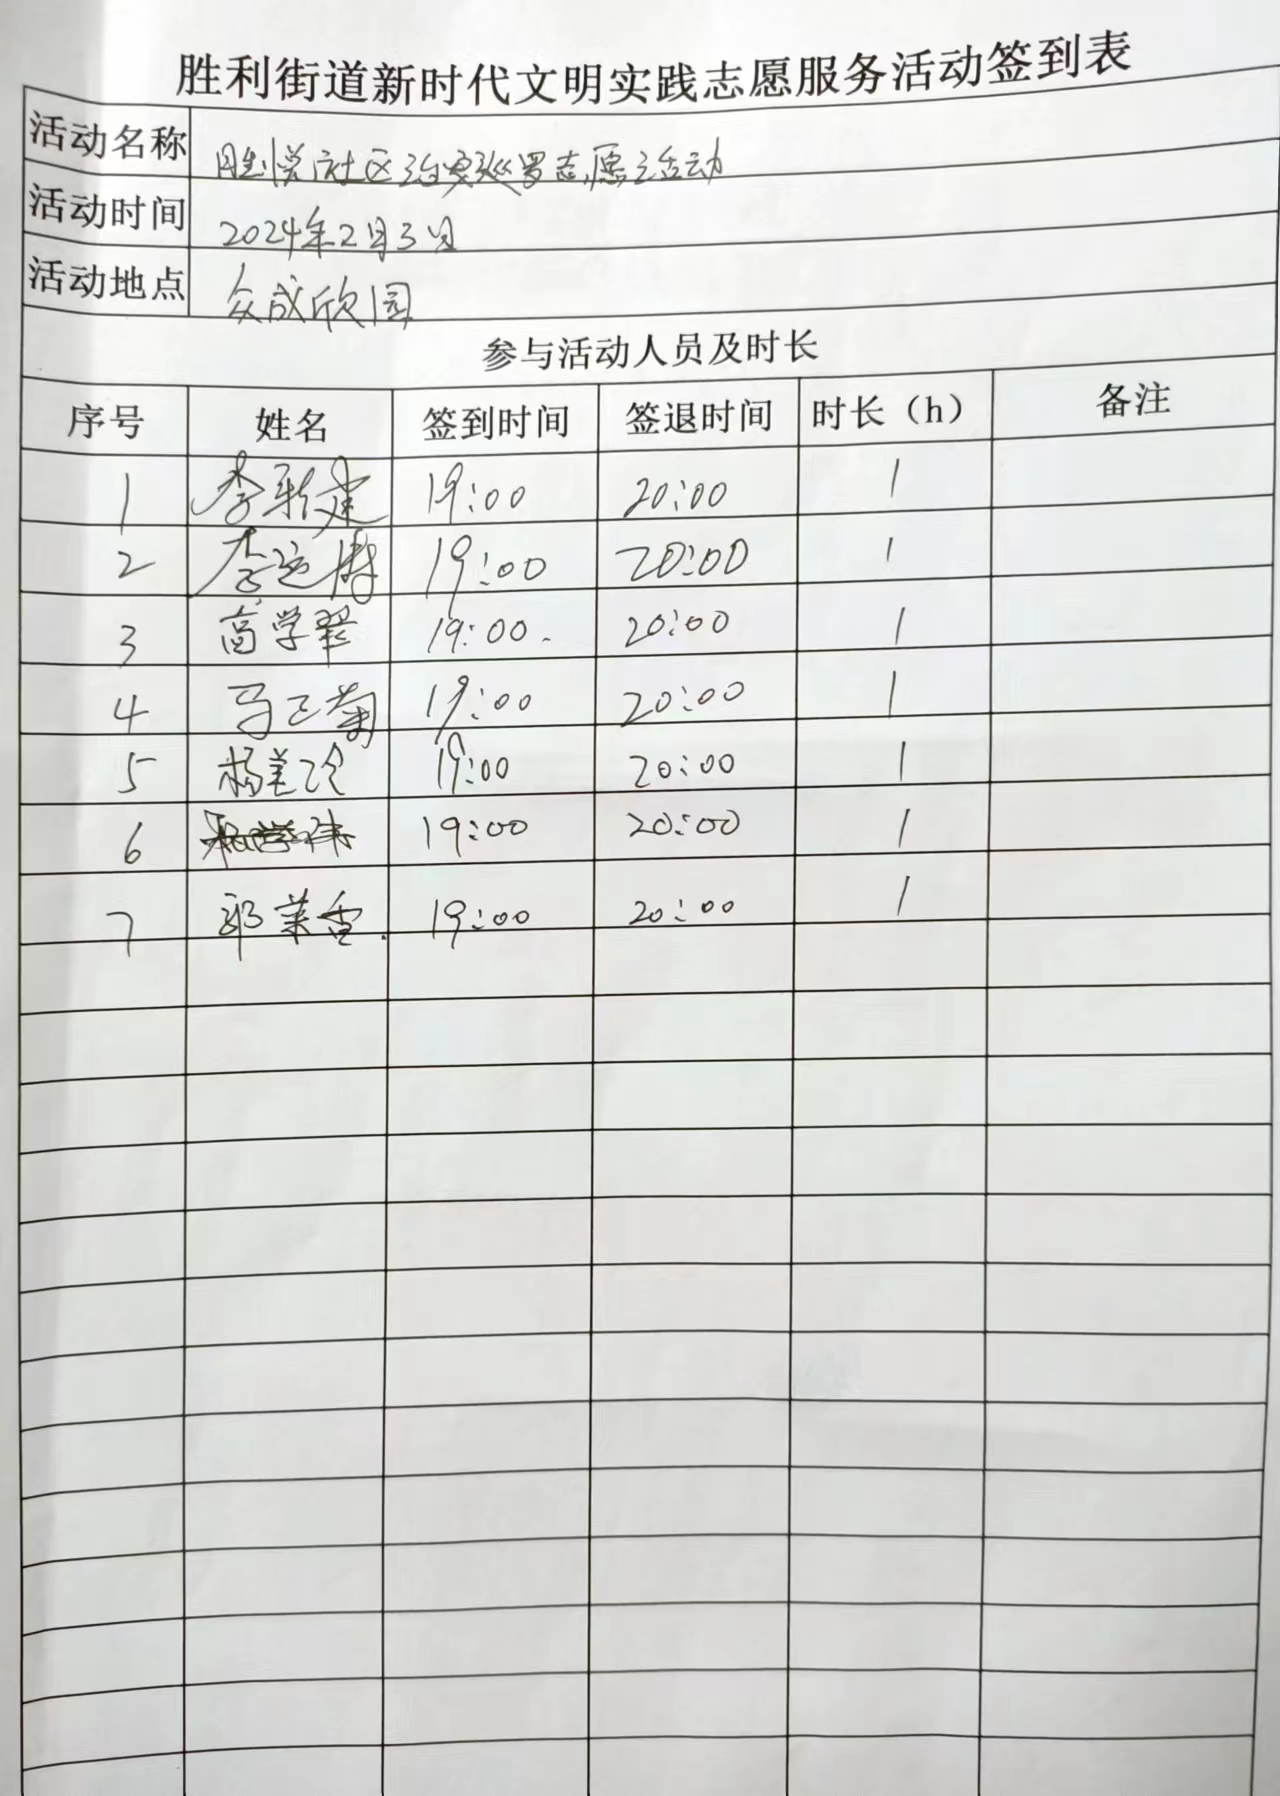 胜利街道新时代文明实践志愿服务活动签到表
活动名称 胜悦社区治安巡逻志愿活动
活动时间 2024年2月3日
活动地点 众成欣园
参与活动人员及时长
序号 姓名 签到时间 签退时间 时长（h） 备注
1 李 建 19:00 20:00 1
2 李运 19:00 20:00 1
3 高学翠 19:00. 20:00 1
4 马 菊 19:00 20:00 1
5 杨美玲 19:00 20:00 1
6 19:00 20:00 1
7 郭 19:00 20:00 1